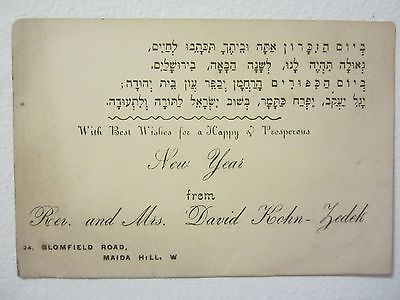 בְּיוֹם הַזִּכָּרוֹן אַתָּה וּבֵיתְךָ תִּכָּתְבוּ לְחַיִּים,
גְּאוּלָּה תִּהְיֶה לָנוּ, לְשָׁנָה הַבָּאָה, בִּירוּשָׁלָיִם.
בְּיוֹם הַכִּפּוּרִים הָרַחֲמָן יְכַפֵּר עֲוֹן בֵּית יְהוּדָה;
יָגֵל יַעֲקֹב, יִפְרַח כַּתָּמָר, בְּשׁוּב יִשְׂרָאֵל לַתּוֹרָה וְלַתְּעוּדָה.
With Best Wishes for a Happy & Prosperous
New Year
from
Rev. and Mrs. David Kohn-Zedek
24, BLOMFIELD ROAD,
MAIDA HILL, W